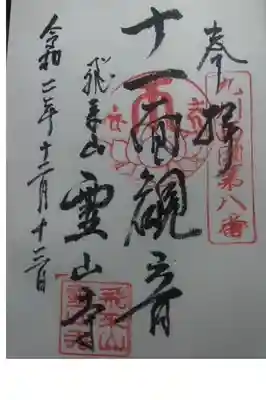 奉拝
九州西国第八番
十一面観音
飛来山
霊山寺
令和二年十二月十三日
飛来山
霊山寺